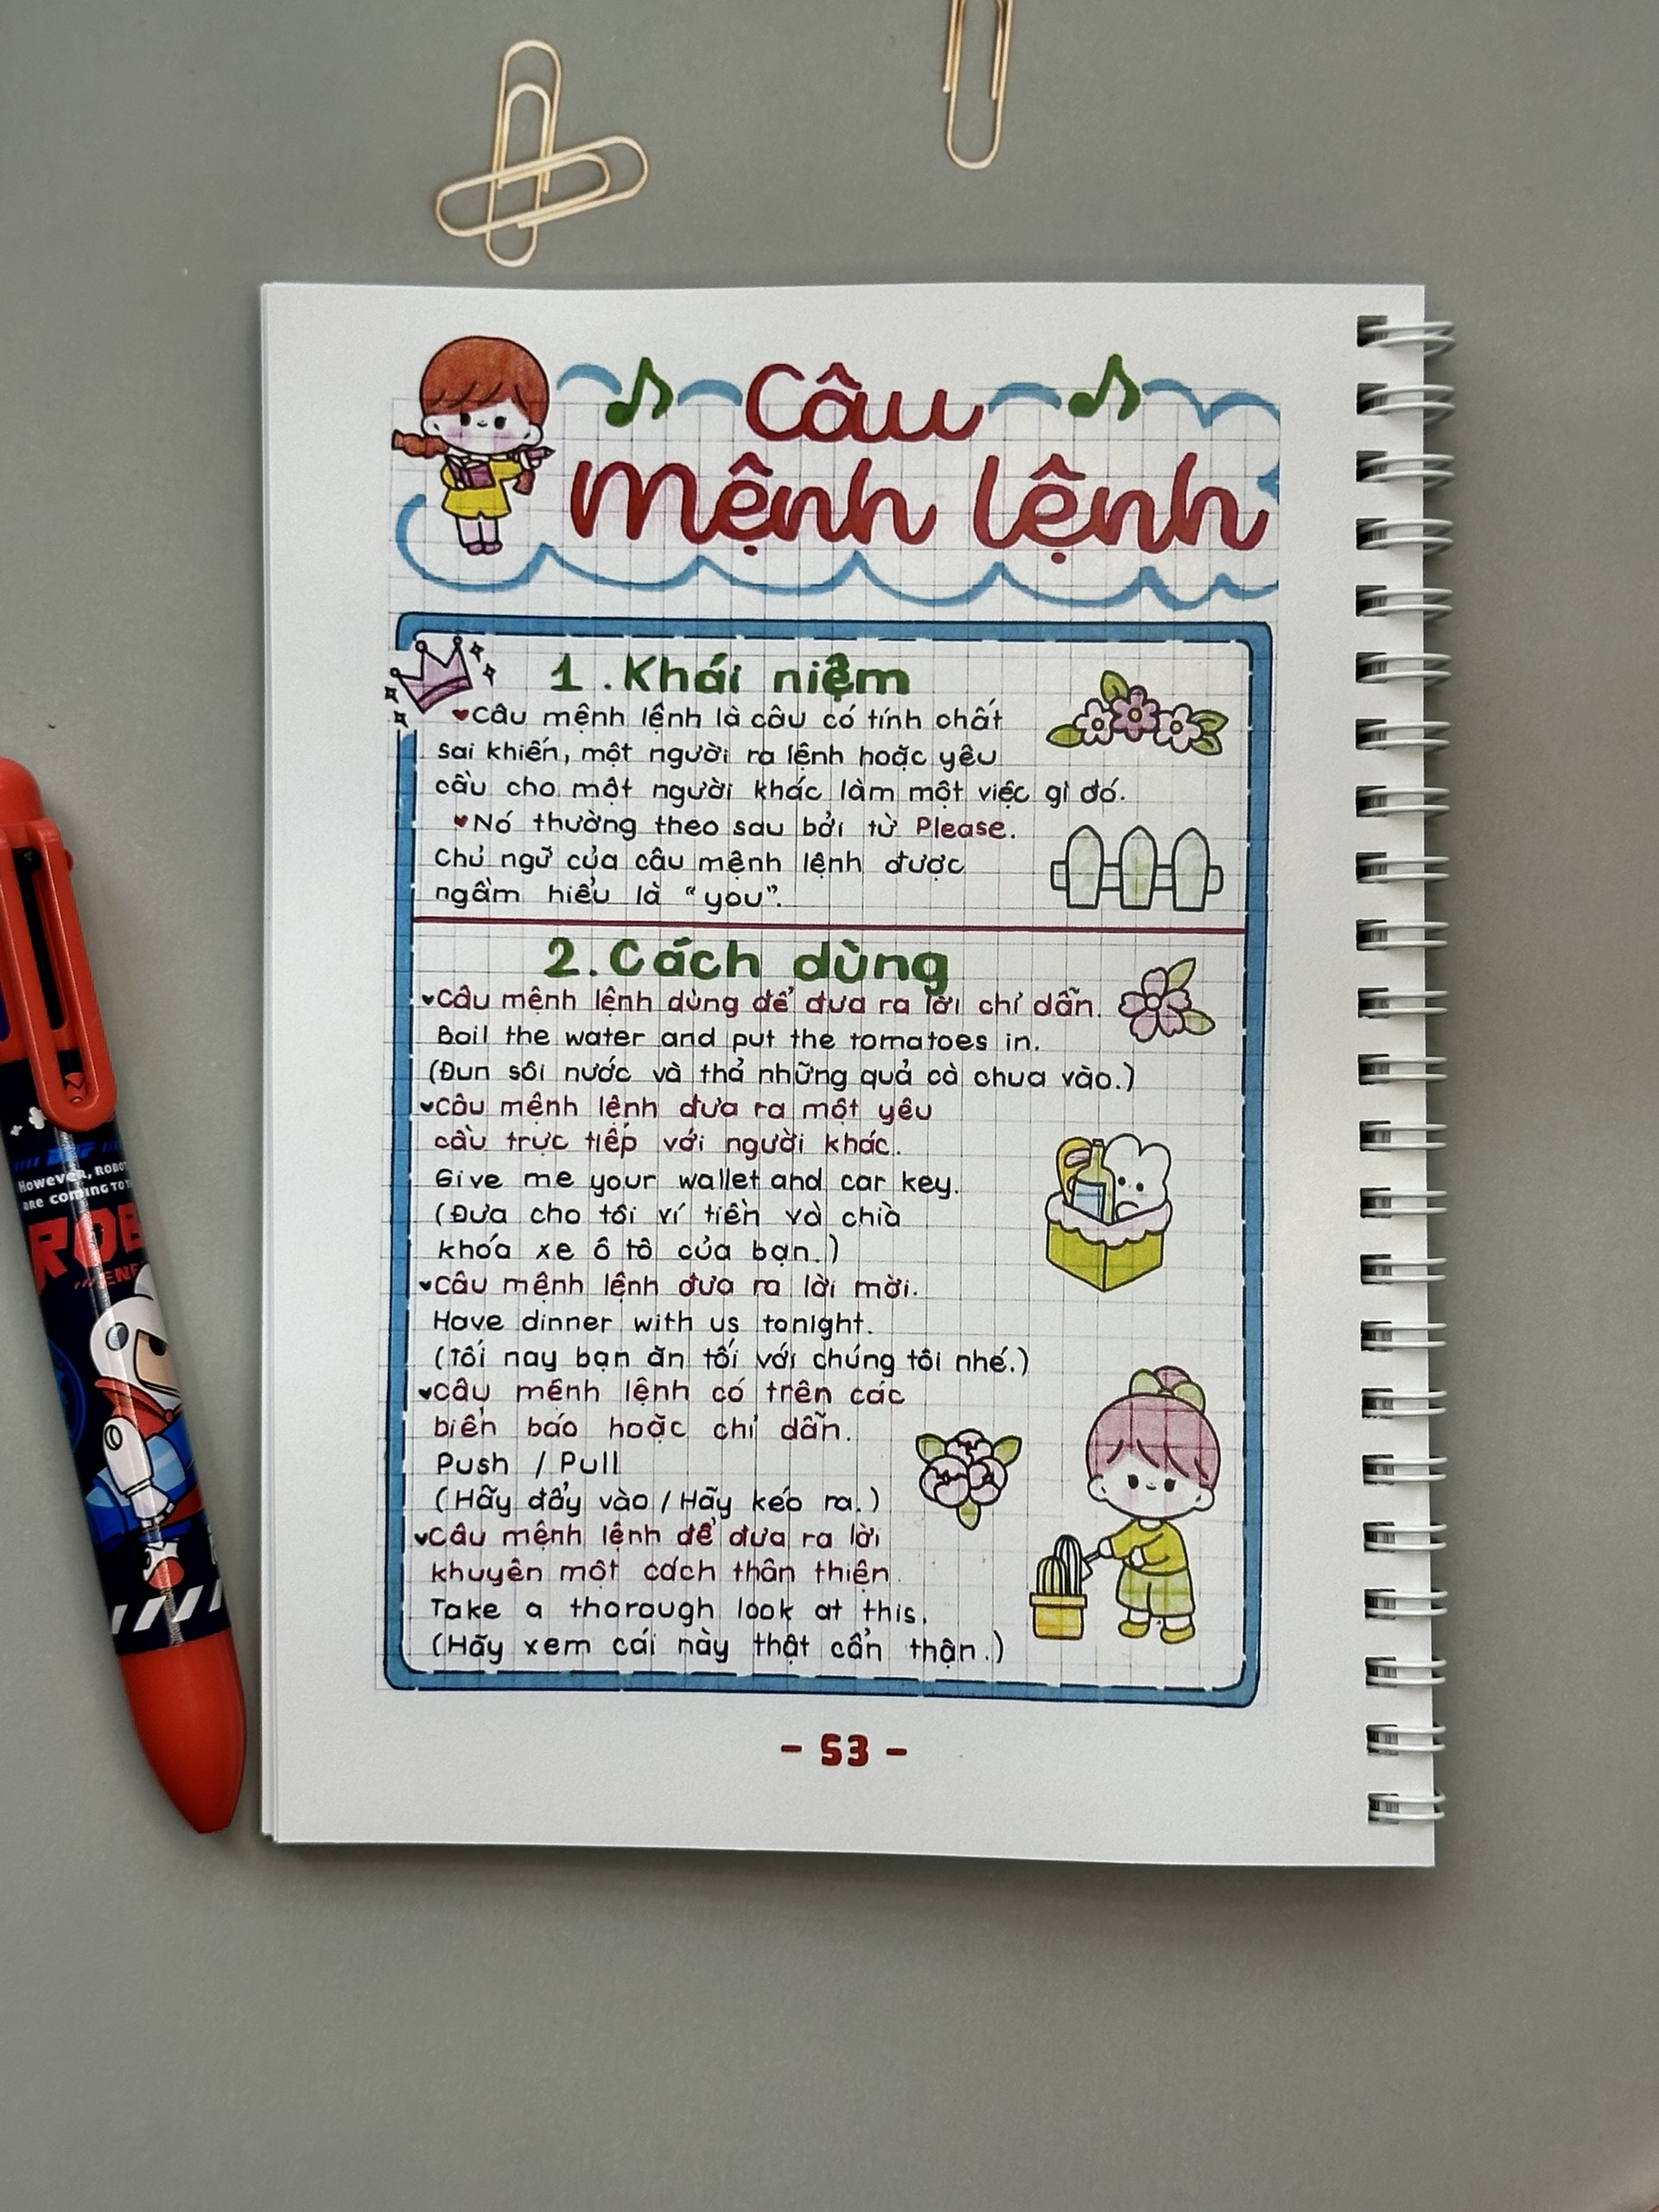 Câu
Mệnh lệnh
1. Khái niệm
Câu mệnh lệnh là câu có tính chất
sai khiến, một người ra lệnh hoặc yêu
cầu cho một người khác làm một việc gì đó.
Nó thường theo sau bởi từ Please.
Chủ ngữ của câu mệnh lệnh được
ngầm hiểu là "you".
2. Cách dùng
Câu mệnh lệnh dùng để đưa ra lời chỉ dẫn.
Boil the water and put the tomatoes in.
(Đun sôi nước và thả những quả cà chua vào.)
Câu mệnh lệnh đưa ra một yêu
cầu trực tiếp với người khác.
Give me your wallet and car key.
(Đưa cho tôi ví tiền và chìa
khóa xe ô tô của bạn.)
Câu mệnh lệnh đưa ra lời mời.
Have dinner with us tonight.
(Tối nay bạn ăn tối với chúng tôi nhé.)
Câu mệnh lệnh có trên các
biển báo hoặc chỉ dẫn.
Push / Pull
(Hãy đẩy vào / Hãy kéo ra.)
Câu mệnh lệnh để đưa ra lời
khuyên một cách thân thiện.
Take a thorough look at this.
(Hãy xem cái này thật cẩn thận.)
- 53 -
However, ROBO
are coming to
ROB